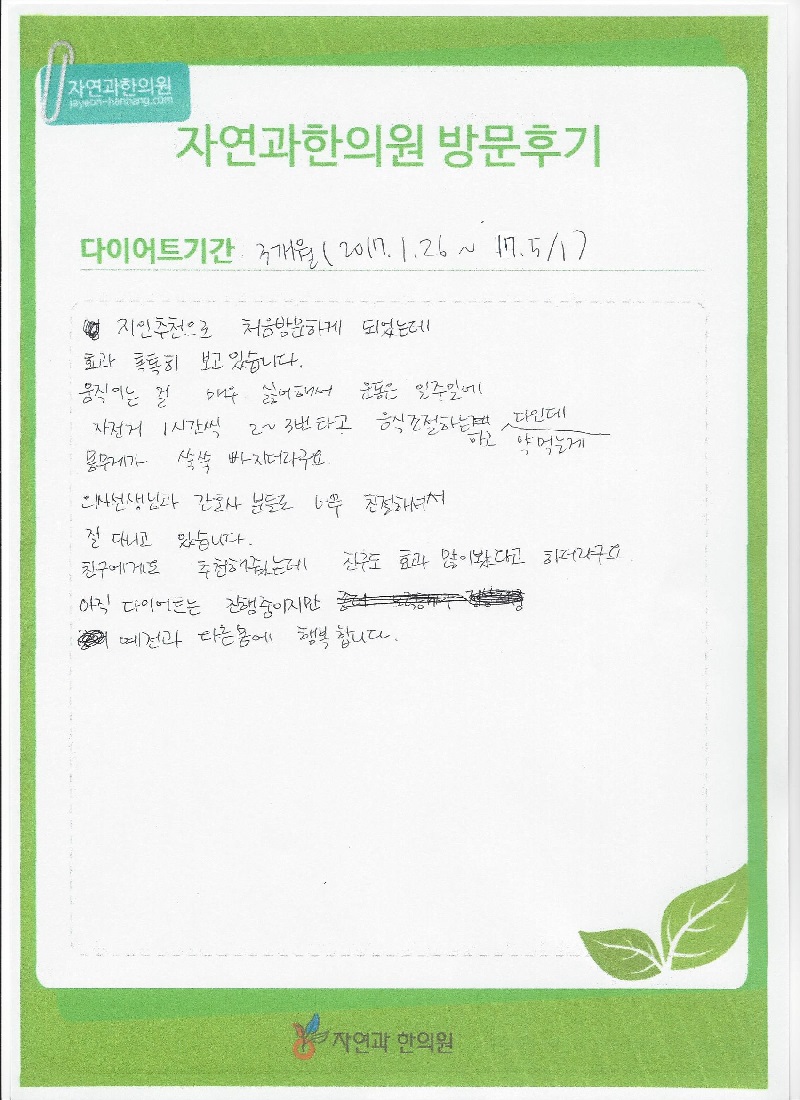 자연과한의원
jayeon-hanbang.com
자연과한의원 방문후기
다이어트기간 3개월 ( 2017. 1. 26 ~ 17. 5/1 )
지인추천으로 처음방문하게 되었는데
효과 톡톡히 보고 있습니다.
움직이는 걸 매우 싫어해서 운동은 일주일에
자전거 1시간씩 2~3번 타고 음식조절하는 다인데
하고 약 먹는게
몸무게가 쑥쑥 빠지더라구요
의사선생님과 간호사 분들도 너무 친절하셔서
잘 다니고 있습니다.
친구에게도 추천해줬는데 친구도 효과 많이봤다고 하더라구요.
아직 다이어트는 진행중이지만
예전과 다른몸에 행복합니다.
자연과 한의원